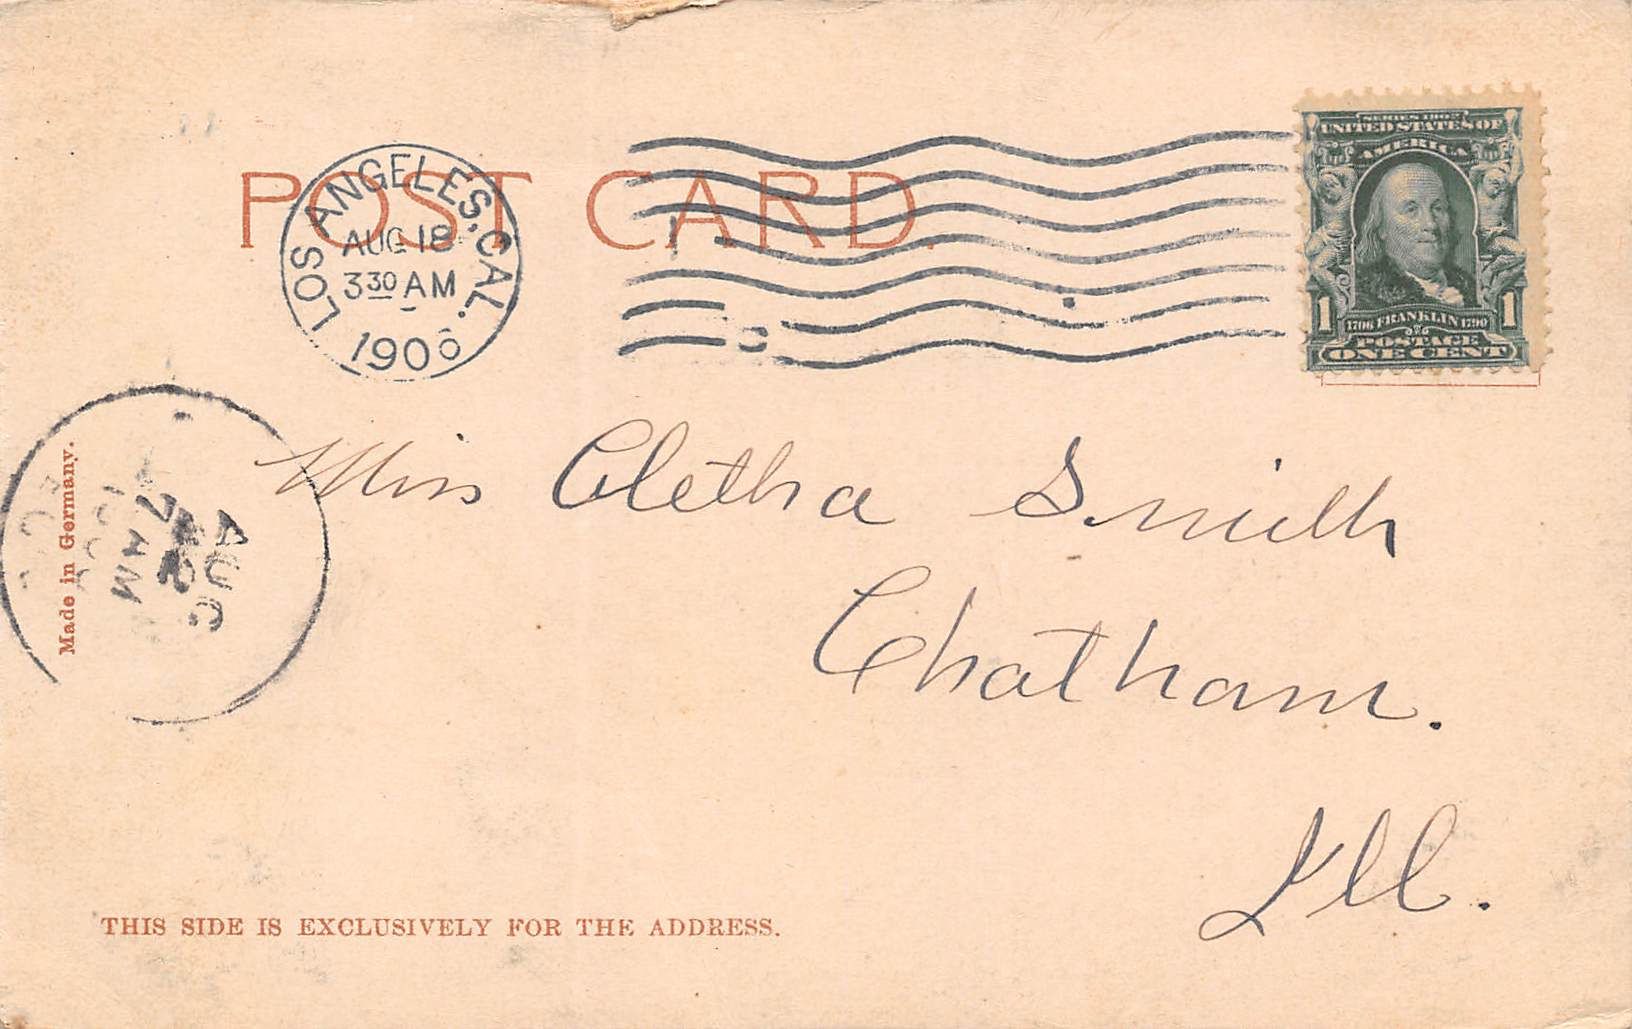 POST CARD.
LOS ANGELES, CAL.
AUG 18
3 30 AM
SERIES 1902
UNITED STATES OF
AMERICA
1706 FRANKLIN 1790
1 1
POSTAGE
ONE CENT
Miss Cletha Smith
Chatham.
Ill.
Made in Germany.
AUG
22
7 AM
REC'D
THIS SIDE IS EXCLUSIVELY FOR THE ADDRESS.